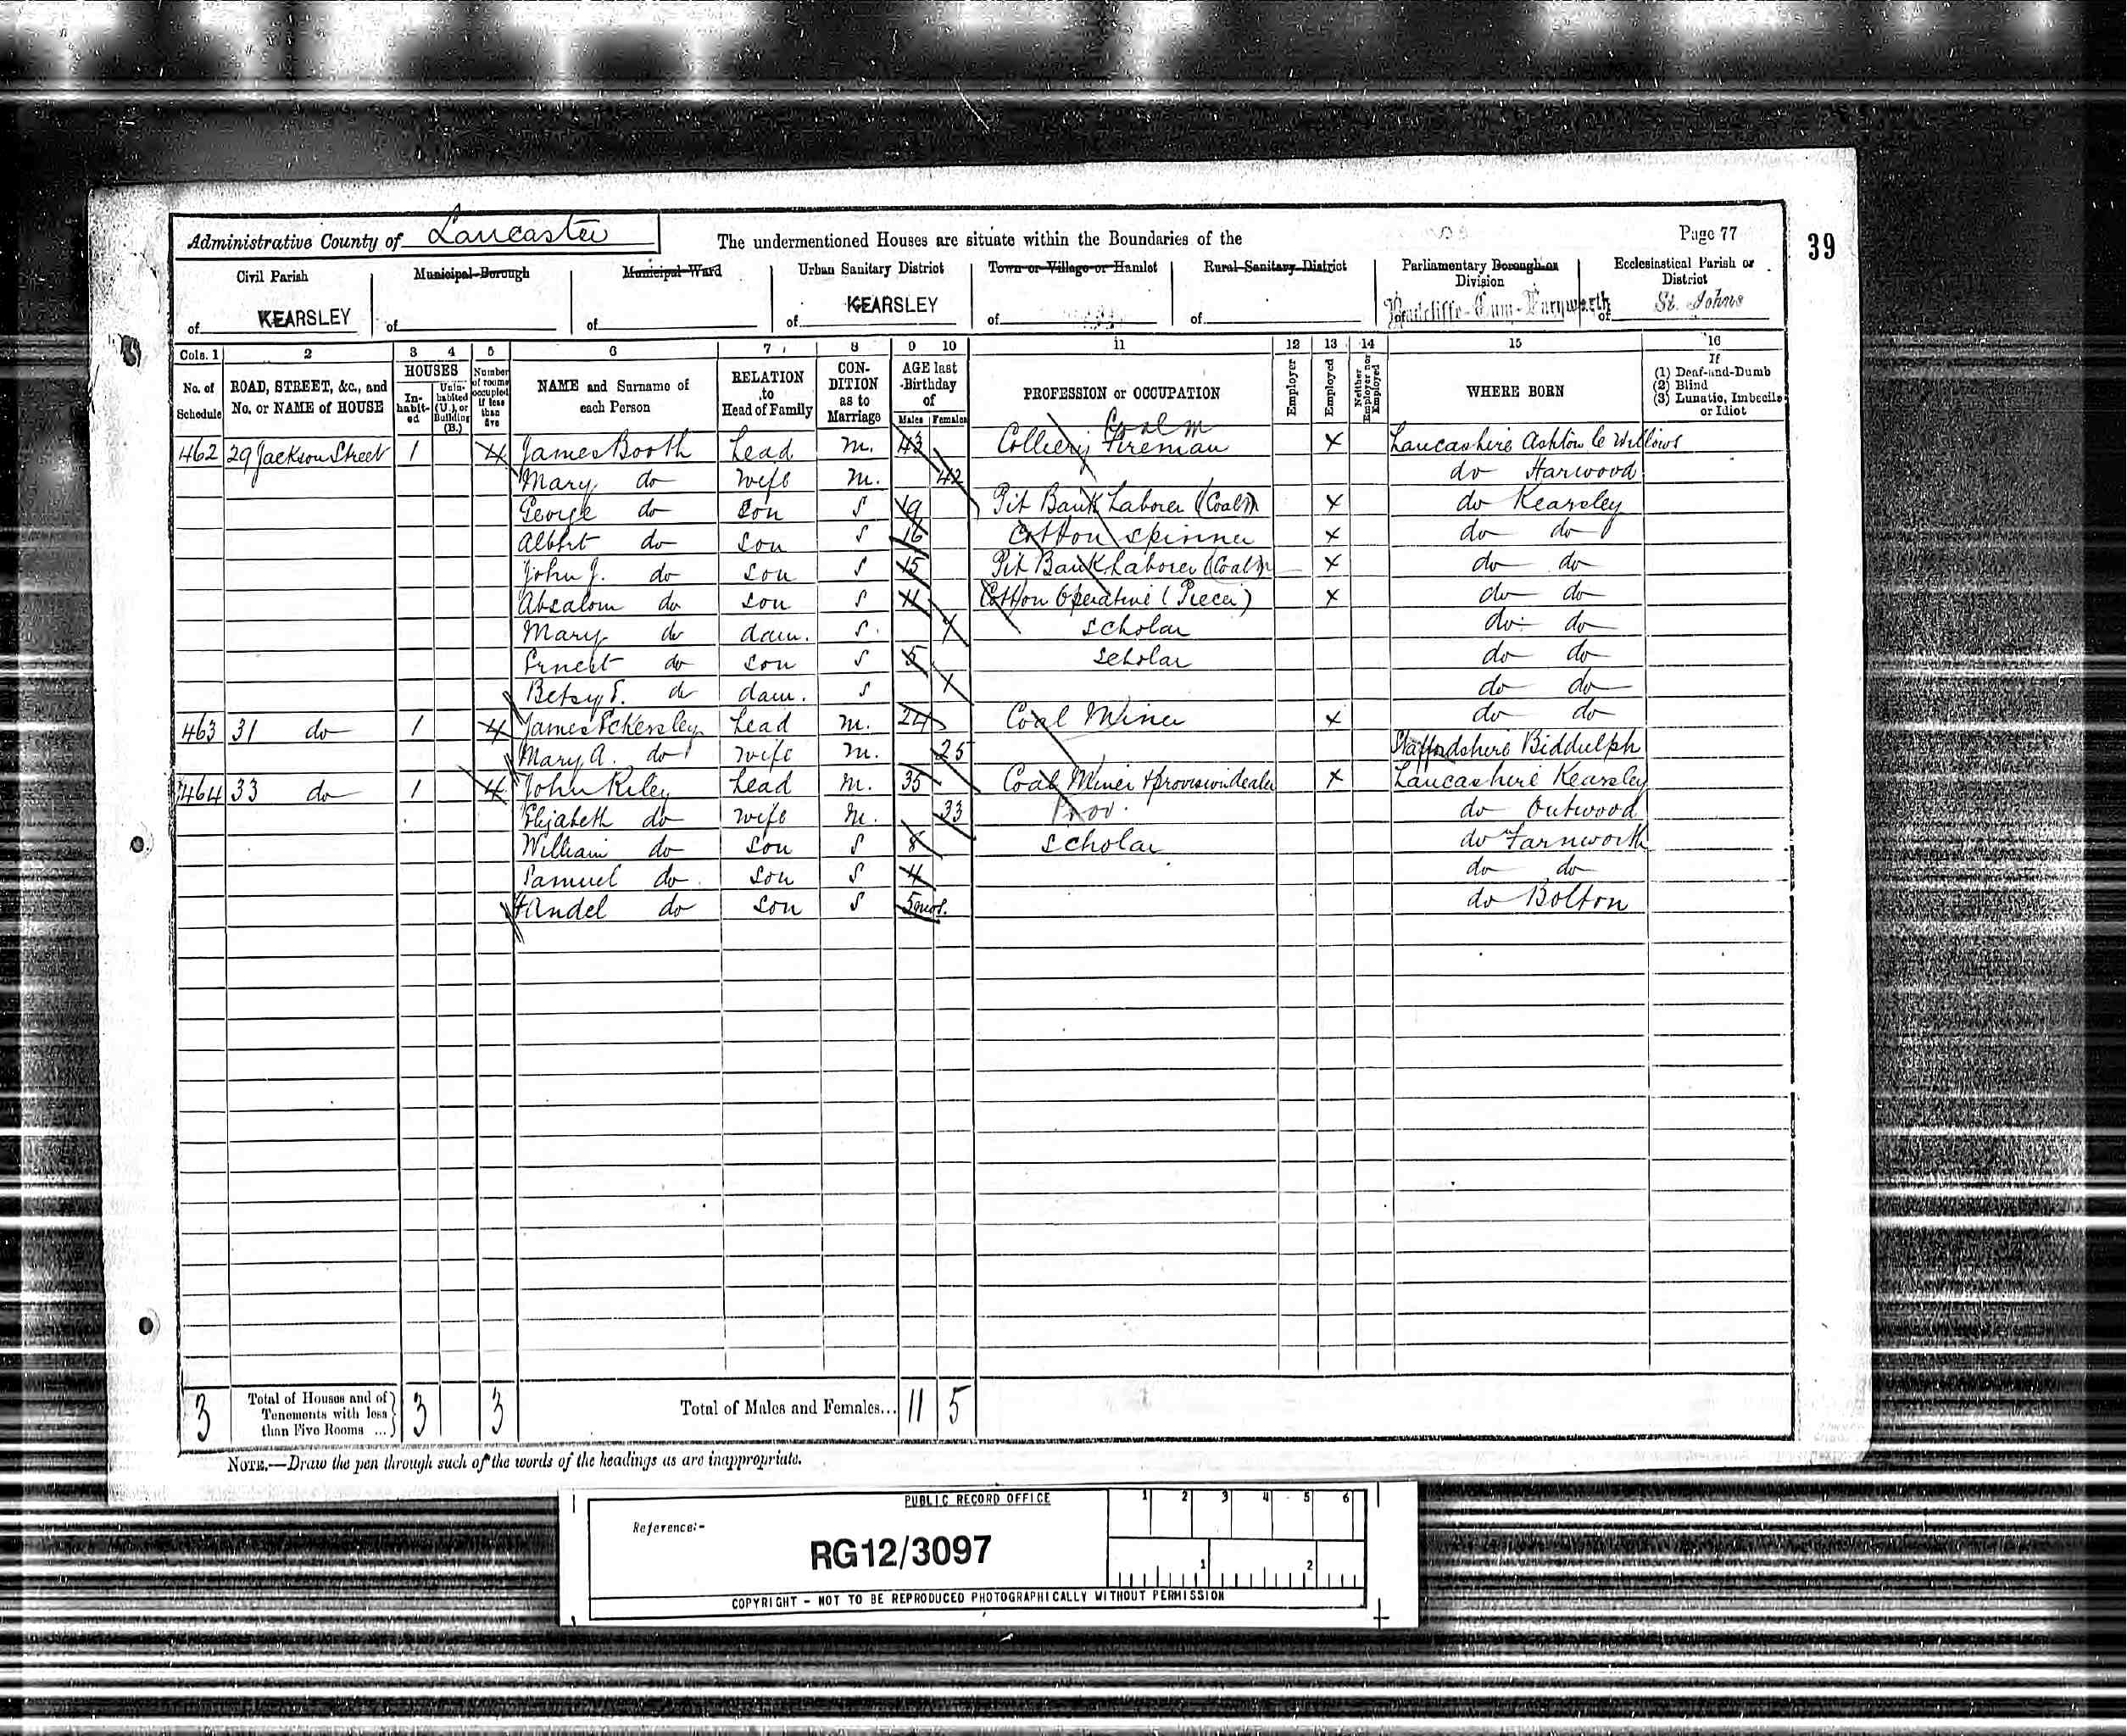 Administrative County of Lancaster
The undermentioned Houses are situate within the Boundaries of the
Page 77
39
Civil Parish
of KEARSLEY
Municipal Borough
of
Municipal Ward
of
Urban Sanitary District
of KEARSLEY
Town or Village or Hamlet
of
Rural Sanitary District
of
Parliamentary Borough or
Division
of Radcliffe-Cum-Farnworth
Ecclesiastical Parish or
District
of St. Johns
Cols. 1 2 3 4 5 6 7 8 9 10 11 12 13 14 15 16
No. of Schedule
ROAD, STREET, &c., and No. or NAME of HOUSE
HOUSES
In-habit-ed
Unin-habited (U.), or Building (B.)
Number of rooms occupied if less than five
NAME and Surname of each Person
RELATION to Head of Family
CON-DITION as to Marriage
AGE last Birthday of
Males Females
PROFESSION or OCCUPATION
Employer
Employed
Neither Employer nor Employed
WHERE BORN
If
(1) Deaf-and-Dumb
(2) Blind
(3) Lunatic, Imbecile or Idiot
Coal M
462 29 Jackson Street 1 4 James Booth Head M. 43 Colliery Fireman X Lancashire Ashton le Willows
Mary do Wife M. 42 do Harwood
George do Son S 19 Pit Bank Laborer (Coal M X do Kearsley
Albert do Son S 16 Cotton Spinner X do do
John J. do Son S 15 Pit Bank Laborer (Coal M X do do
Absalom do Son S 11 Cotton Operative (Piecer) X do do
Mary do daur. S. 7 Scholar do do
Ernest do Son S 5 Scholar do do
Betsy do daur. S 1 do do
463 31 do 1 4 James Eckersley Head M. 24 Coal Miner X do do
Mary A. do Wife M. 25 Staffordshire Biddulph
464 33 do 1 4 John Riley Head M. 35 Coal Miner & provision dealer X Lancashire Kearsley
Elizabeth do Wife M. 33 Prov. do Outwood
William do Son S 8 Scholar do Farnworth
Samuel do Son S 4 do do
Handel do Son S 5 mos. do Bolton
3 Total of Houses and of Tenements with less than Five Rooms ... 3 3 Total of Males and Females... 11 5
NOTE.—Draw the pen through such of the words of the headings as are inappropriate.
PUBLIC RECORD OFFICE
Reference:-
RG12/3097
1 2 3 4 5 6
1 2
COPYRIGHT - NOT TO BE REPRODUCED PHOTOGRAPHICALLY WITHOUT PERMISSION